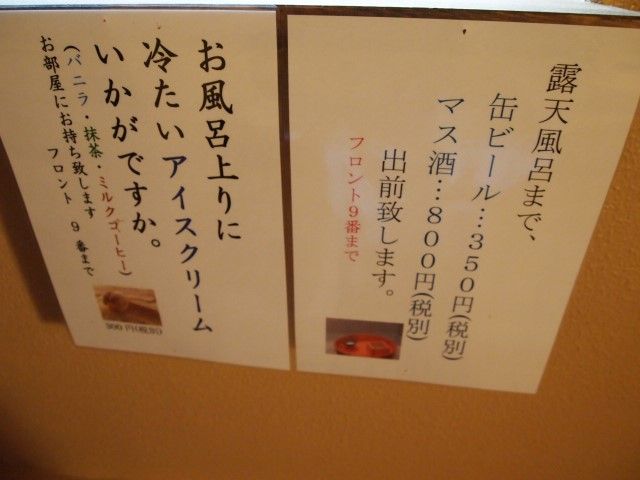 露天風呂まで、
缶ビール…350円(税別)
マス酒…800円(税別)
出前致します。
フロント9番まで
お風呂上りに
冷たいアイスクリーム
いかがですか。
(バニラ・抹茶・ミルクコーヒー)
お部屋にお持ち致します
フロント 9 番まで
300円(税別)